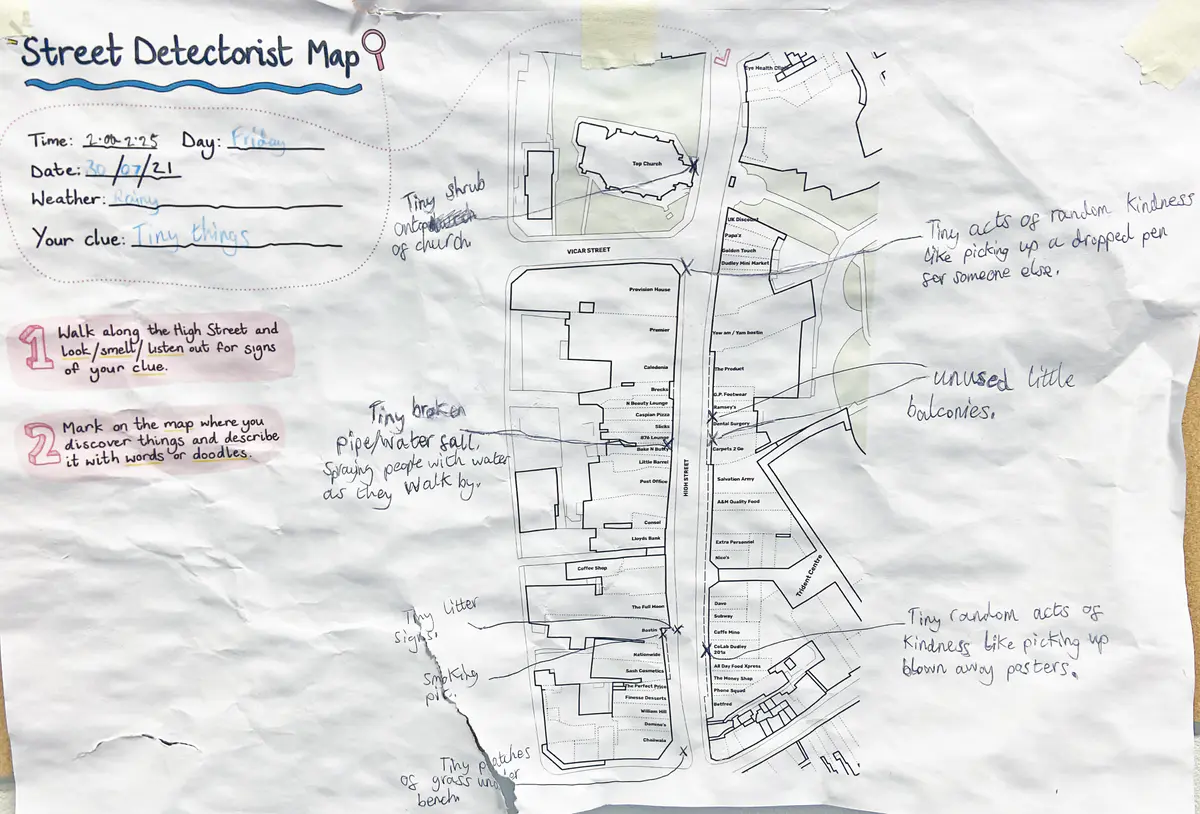 Street Detectorist Map
Time: 2:00-2:25 Day: Friday
Date: 30/07/21
Weather: Rainy
Your clue: Tiny things
1 Walk along the High Street and
look/smell/listen out for signs
of your clue.
2 Mark on the map where you
discover things and describe
it with words or doodles.
Tiny shrub
ontop
of church
Tiny broken
pipe/water fall.
Spraying people with water
as they walk by.
Tiny litter
signs.
Smoking
Tiny patches
of grass under
bench
Eye Health Clinic
Top Church
VICAR STREET
UK Discount
Papa's
Golden Touch
Dudley Mini Market
Provision House
Premier
Yaw am / Yam berlin
Caledonia
The Product
Brecks
G.P. Footwear
N Beauty Lounge
Ramsey's
Caspian Pizza
Dental Surgery
Slicks
876 Lounge
Bake N Butty
Carpets 2 Go
Little Barrel
HIGH STREET
Post Office
Salvation Army
A&M Quality Food
Cansel
Lloyds Bank
Extra Personnel
Nico's
Coffee Shop
Trident Centre
The Full Moon
Dave
Subway
Bostin
Caffe Mino
Nationwide
CoLab Dudley
201a
Sash Cosmetics
All Day Food Xpress
The Perfect Price
The Money Shop
Finesse Desserts
Phone Squad
William Hill
Betfred
Domino's
Chaiiwala
Tiny acts of random kindness
like picking up a dropped pen
for someone else.
unused little
balconies.
Tiny random acts of
kindness like picking up
blown away posters.